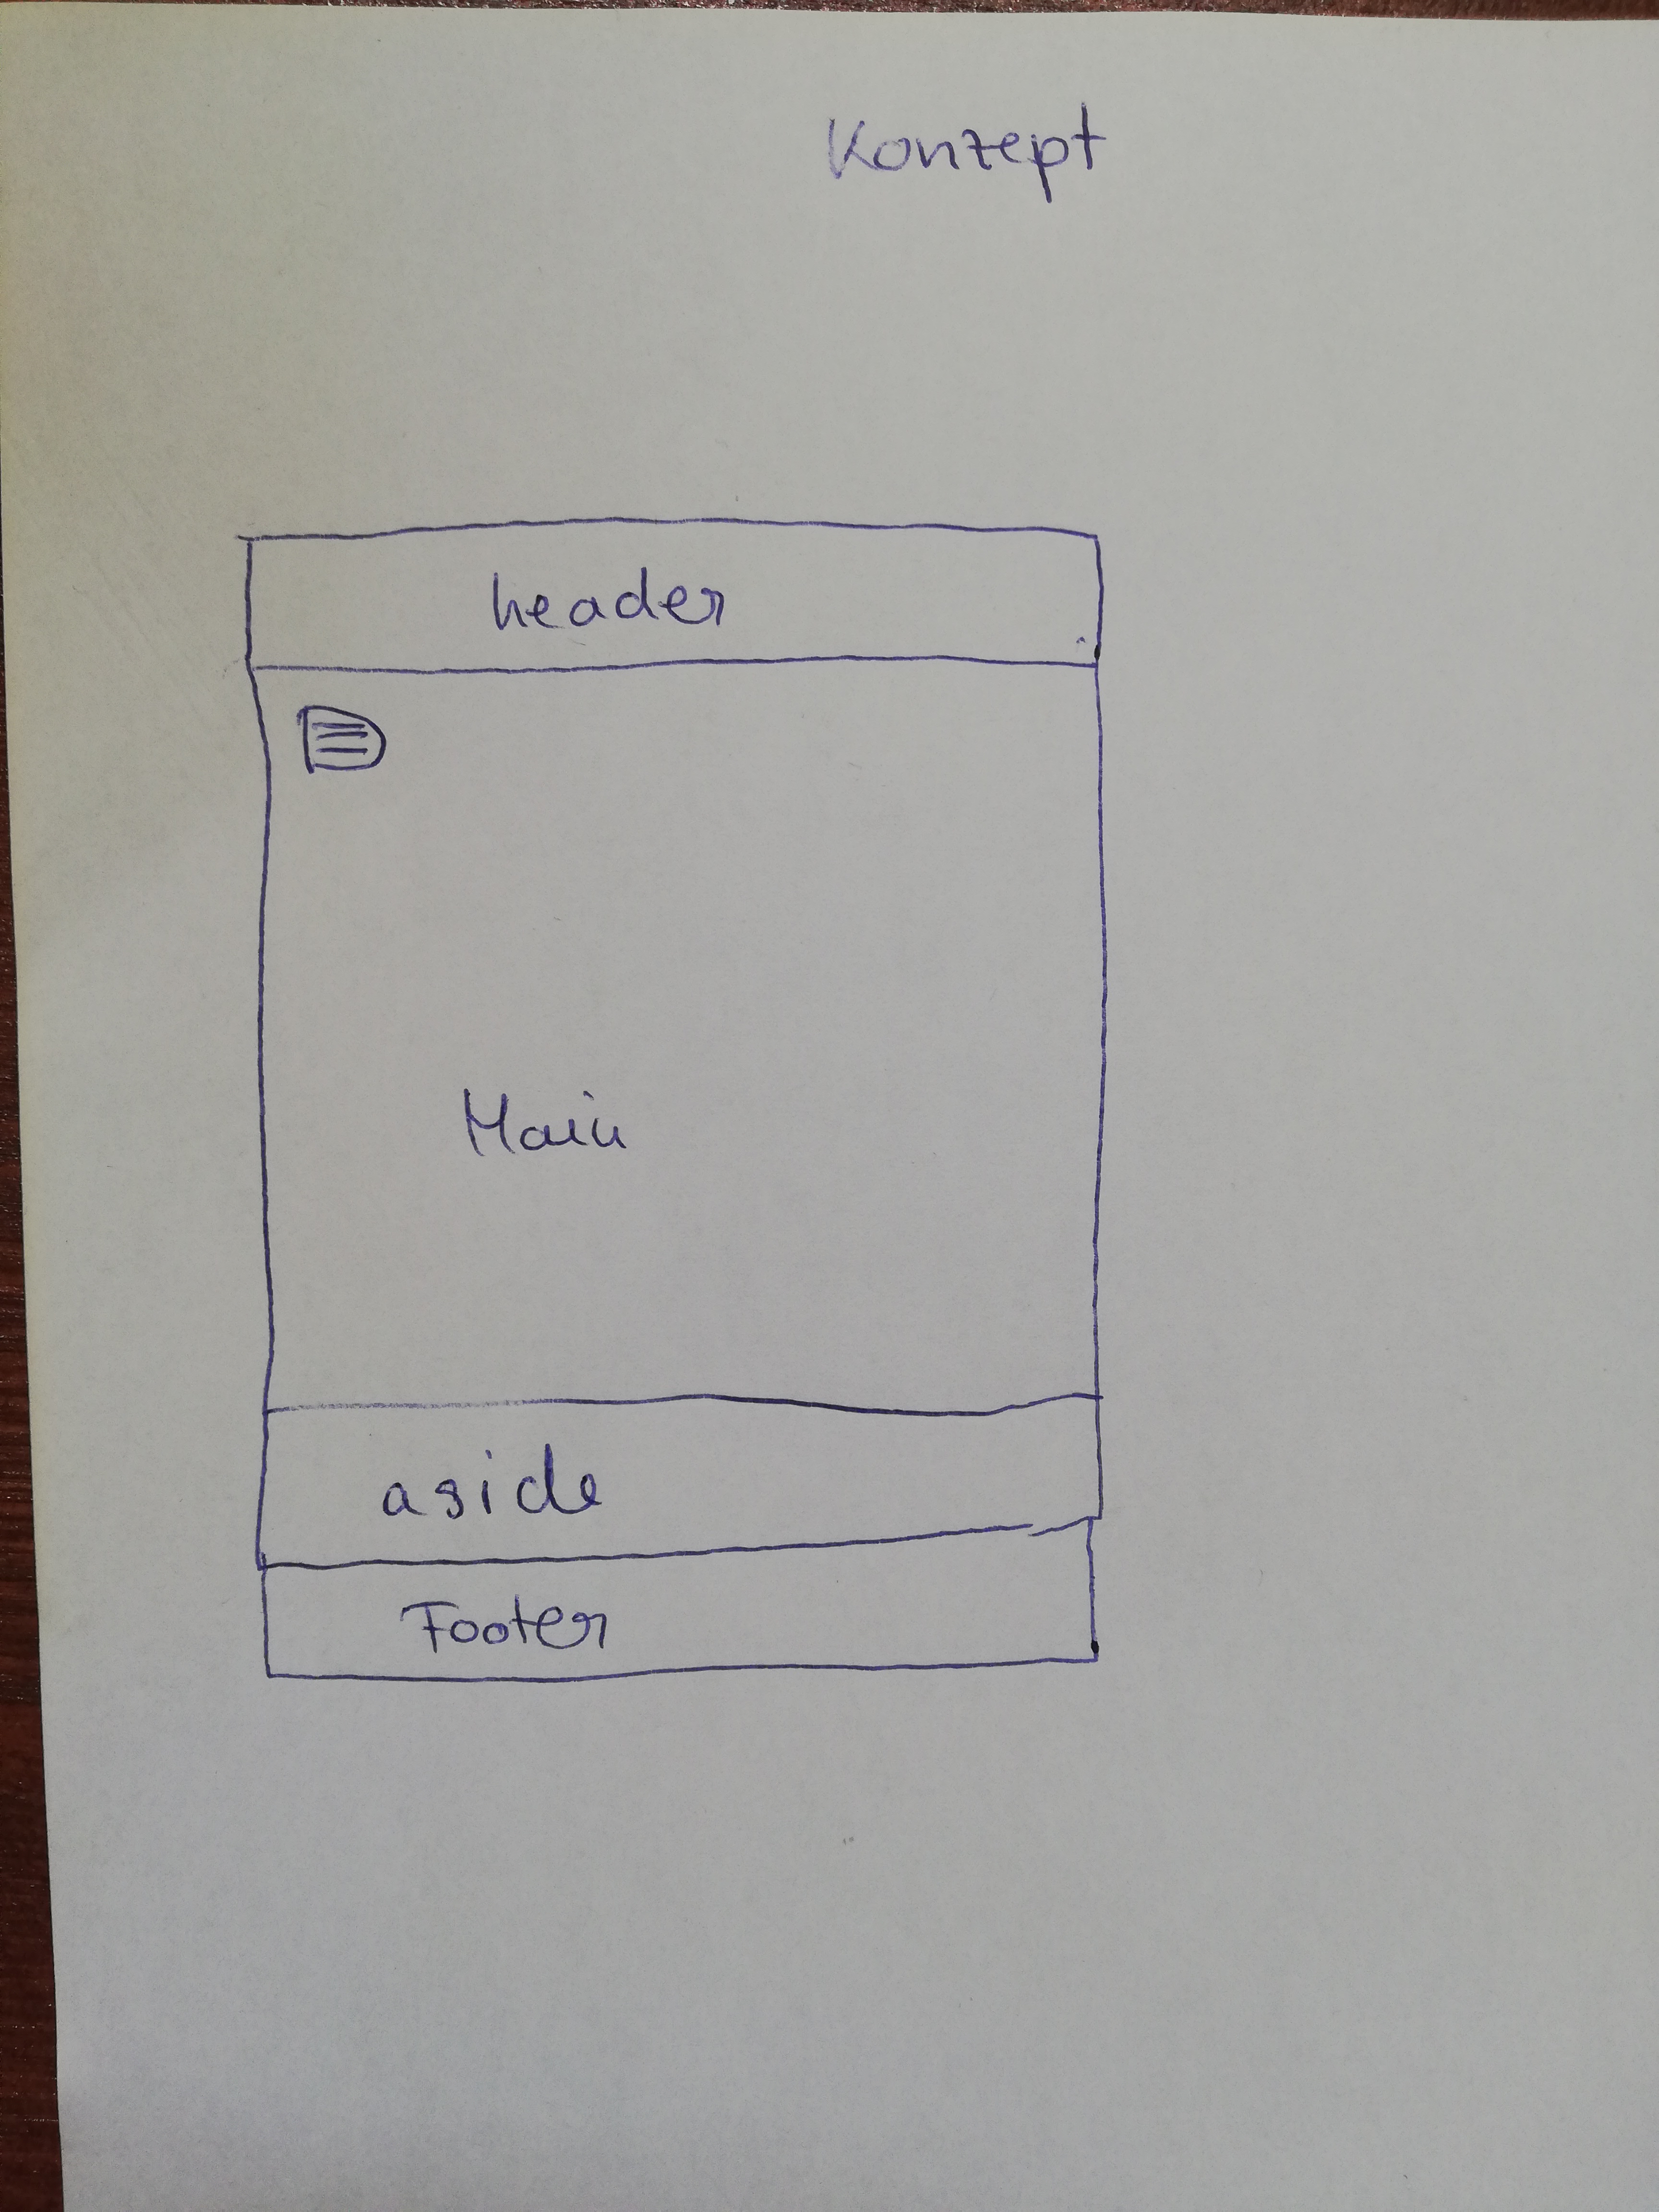 Konzept
header
Main
aside
Footer